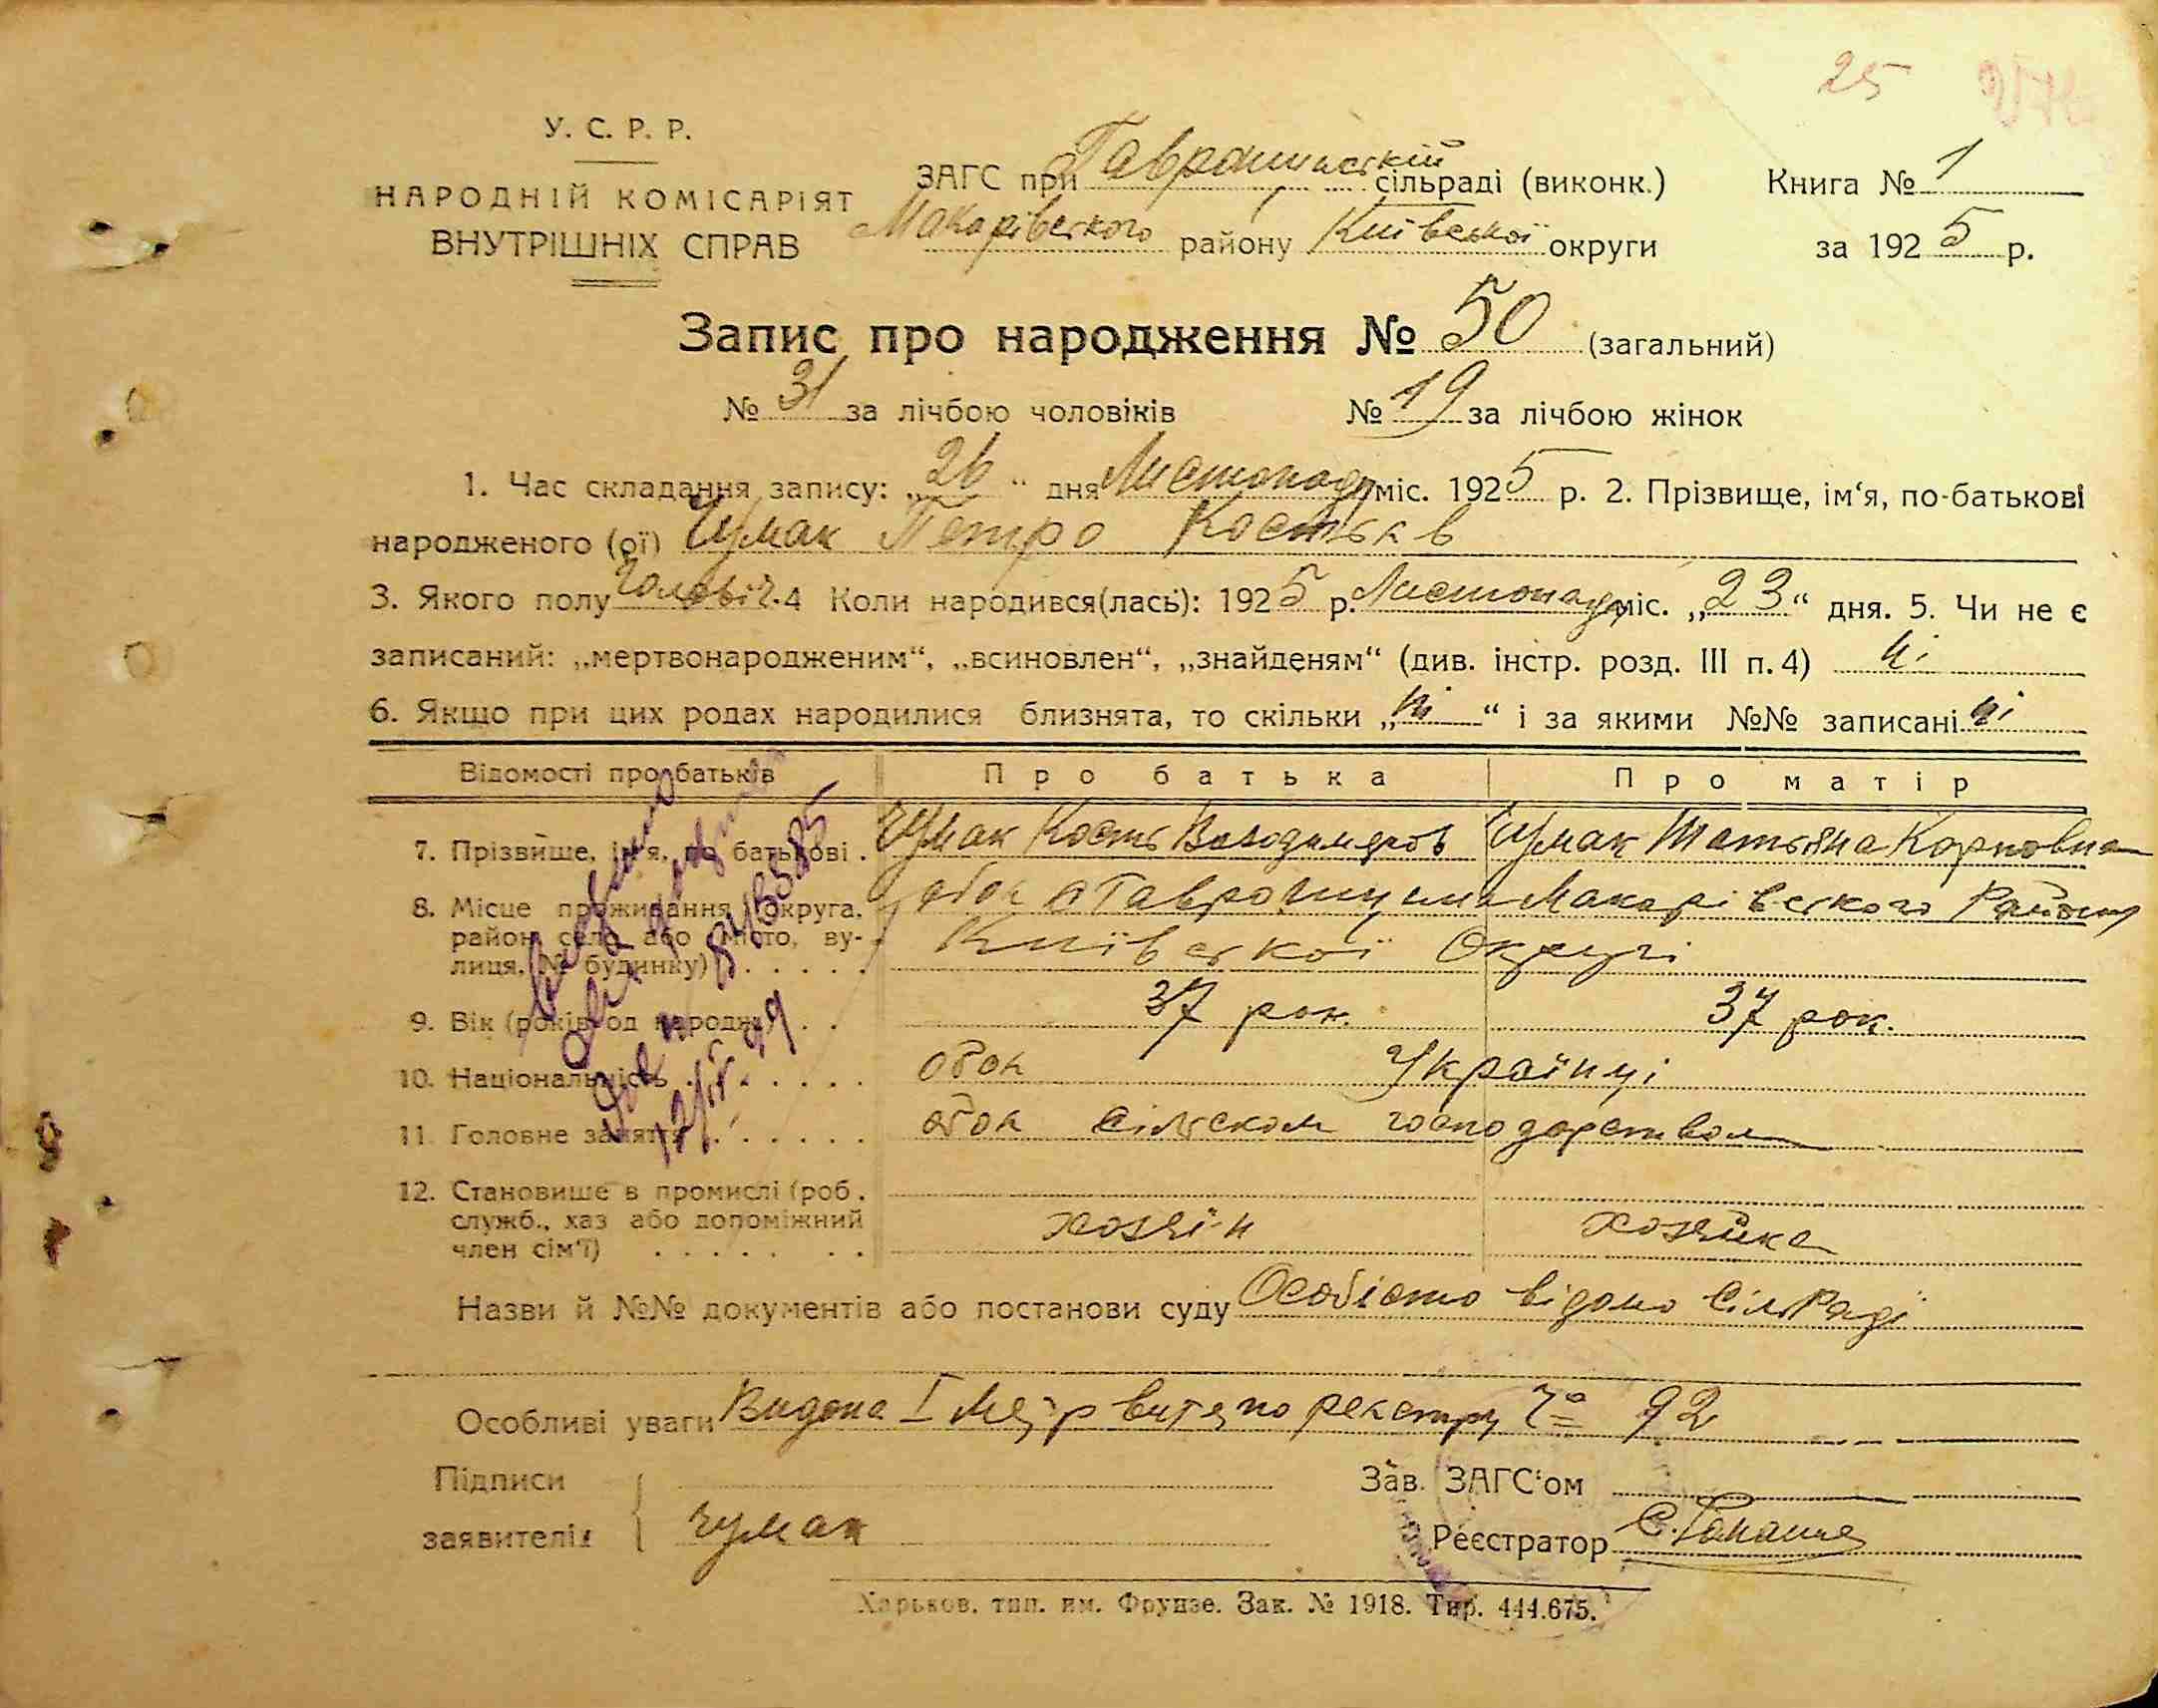 25
У. С. Р. Р.
НАРОДНІЙ КОМІСАРІЯТ
ВНУТРІШНІХ СПРАВ
ЗАГС при Гавронщинській сільраді (виконк.)
Макарівського району Київської округи
Книга № 1
за 1925 р.
Запис про народження № 50 (загальний)
№ 31 за лічбою чоловіків № 19 за лічбою жінок
1. Час складання запису: „26“ дня Листопаду міс. 1925 р. 2. Прізвище, ім‘я, по-батькові
народженого (ої) Чумак Петро Костьків
3. Якого полу Чоловіч. 4 Коли народився(лась): 1925 р. Листопаду міс. „23“ дня. 5. Чи не є
записаний: „мертвонародженим“, „всиновлен“, „знайденям“ (див. інстр. розд. III п. 4) ні
6. Якщо при цих родах народилися близнята, то скільки „ні“ і за якими №№ записані ні
Відомості про батьків Про батька Про матір
7. Прізвище, ім‘я, по батькові . Чумак Кость Володимеров Чумак Татьяна Карповна
8. Місце проживання (округа, обоє с Гавронщина Макарівського Району
район, село або місто, ву- Київської Округи
лиця, № будинку) . . . . .
9. Вік (років од народж.) . . 37 рок. 37 рок.
10. Національність . . . . . . обоє Українці
11. Головне заняття . . . . . . обоє сільском господарством
12. Становище в промислі (роб.
служб., хаз або допоміжний хозяїн хозяйка
член сім‘ї) . . . . . . .
Назви й №№ документів або постанови суду Особісто відомо СільРаді
Особливі уваги Видана I реєстру 92
Підписи Зав. ЗАГС‘ом
заявителів Чумак Реєстратор
Харьков, тип. им. Фрунзе. Зак. № 1918. Тир. 444.675.